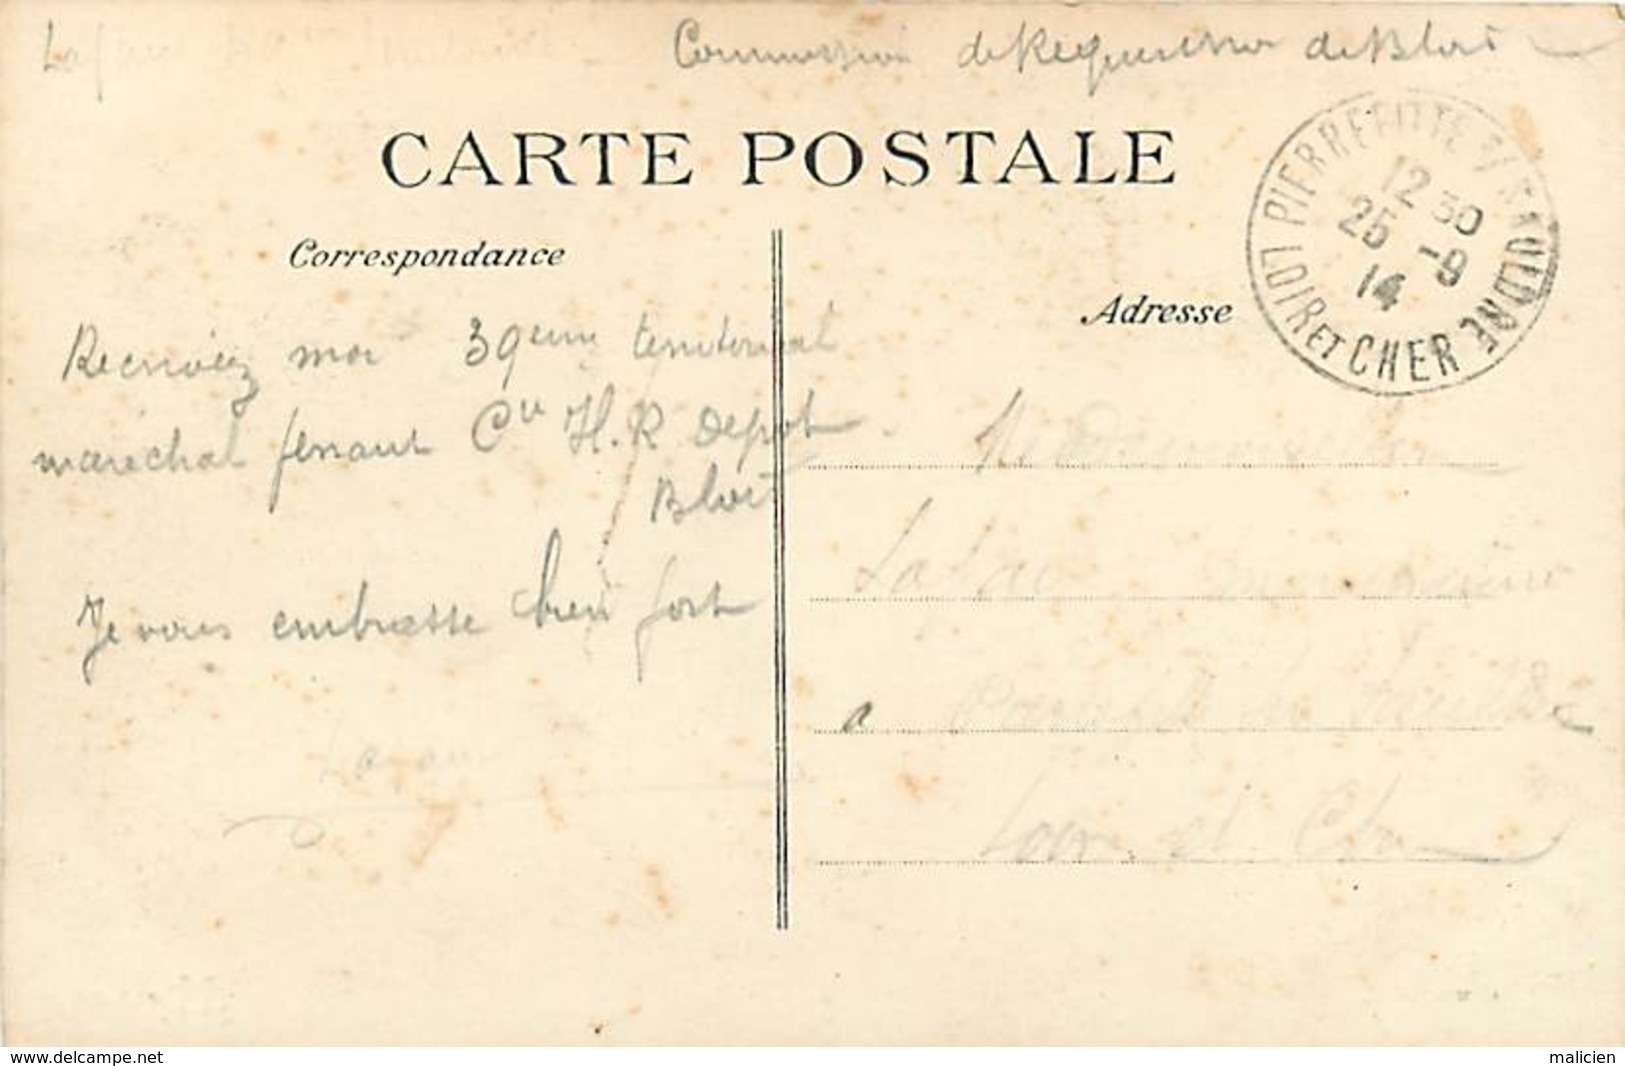 Commission de Requisition de Blois
CARTE POSTALE
PIERREFITTE S/ SAULDRE
12 30
25 -9
14
LOIR ET CHER
Correspondance
Adresse
Recrivez moi 39eme territorial
maréchal ferrant Cie H.R Depot
Blois
Je vous embrasse bien fort
Mademoiselle
Lafai
a
Loir et Cher
www.delcampe.net
malicien